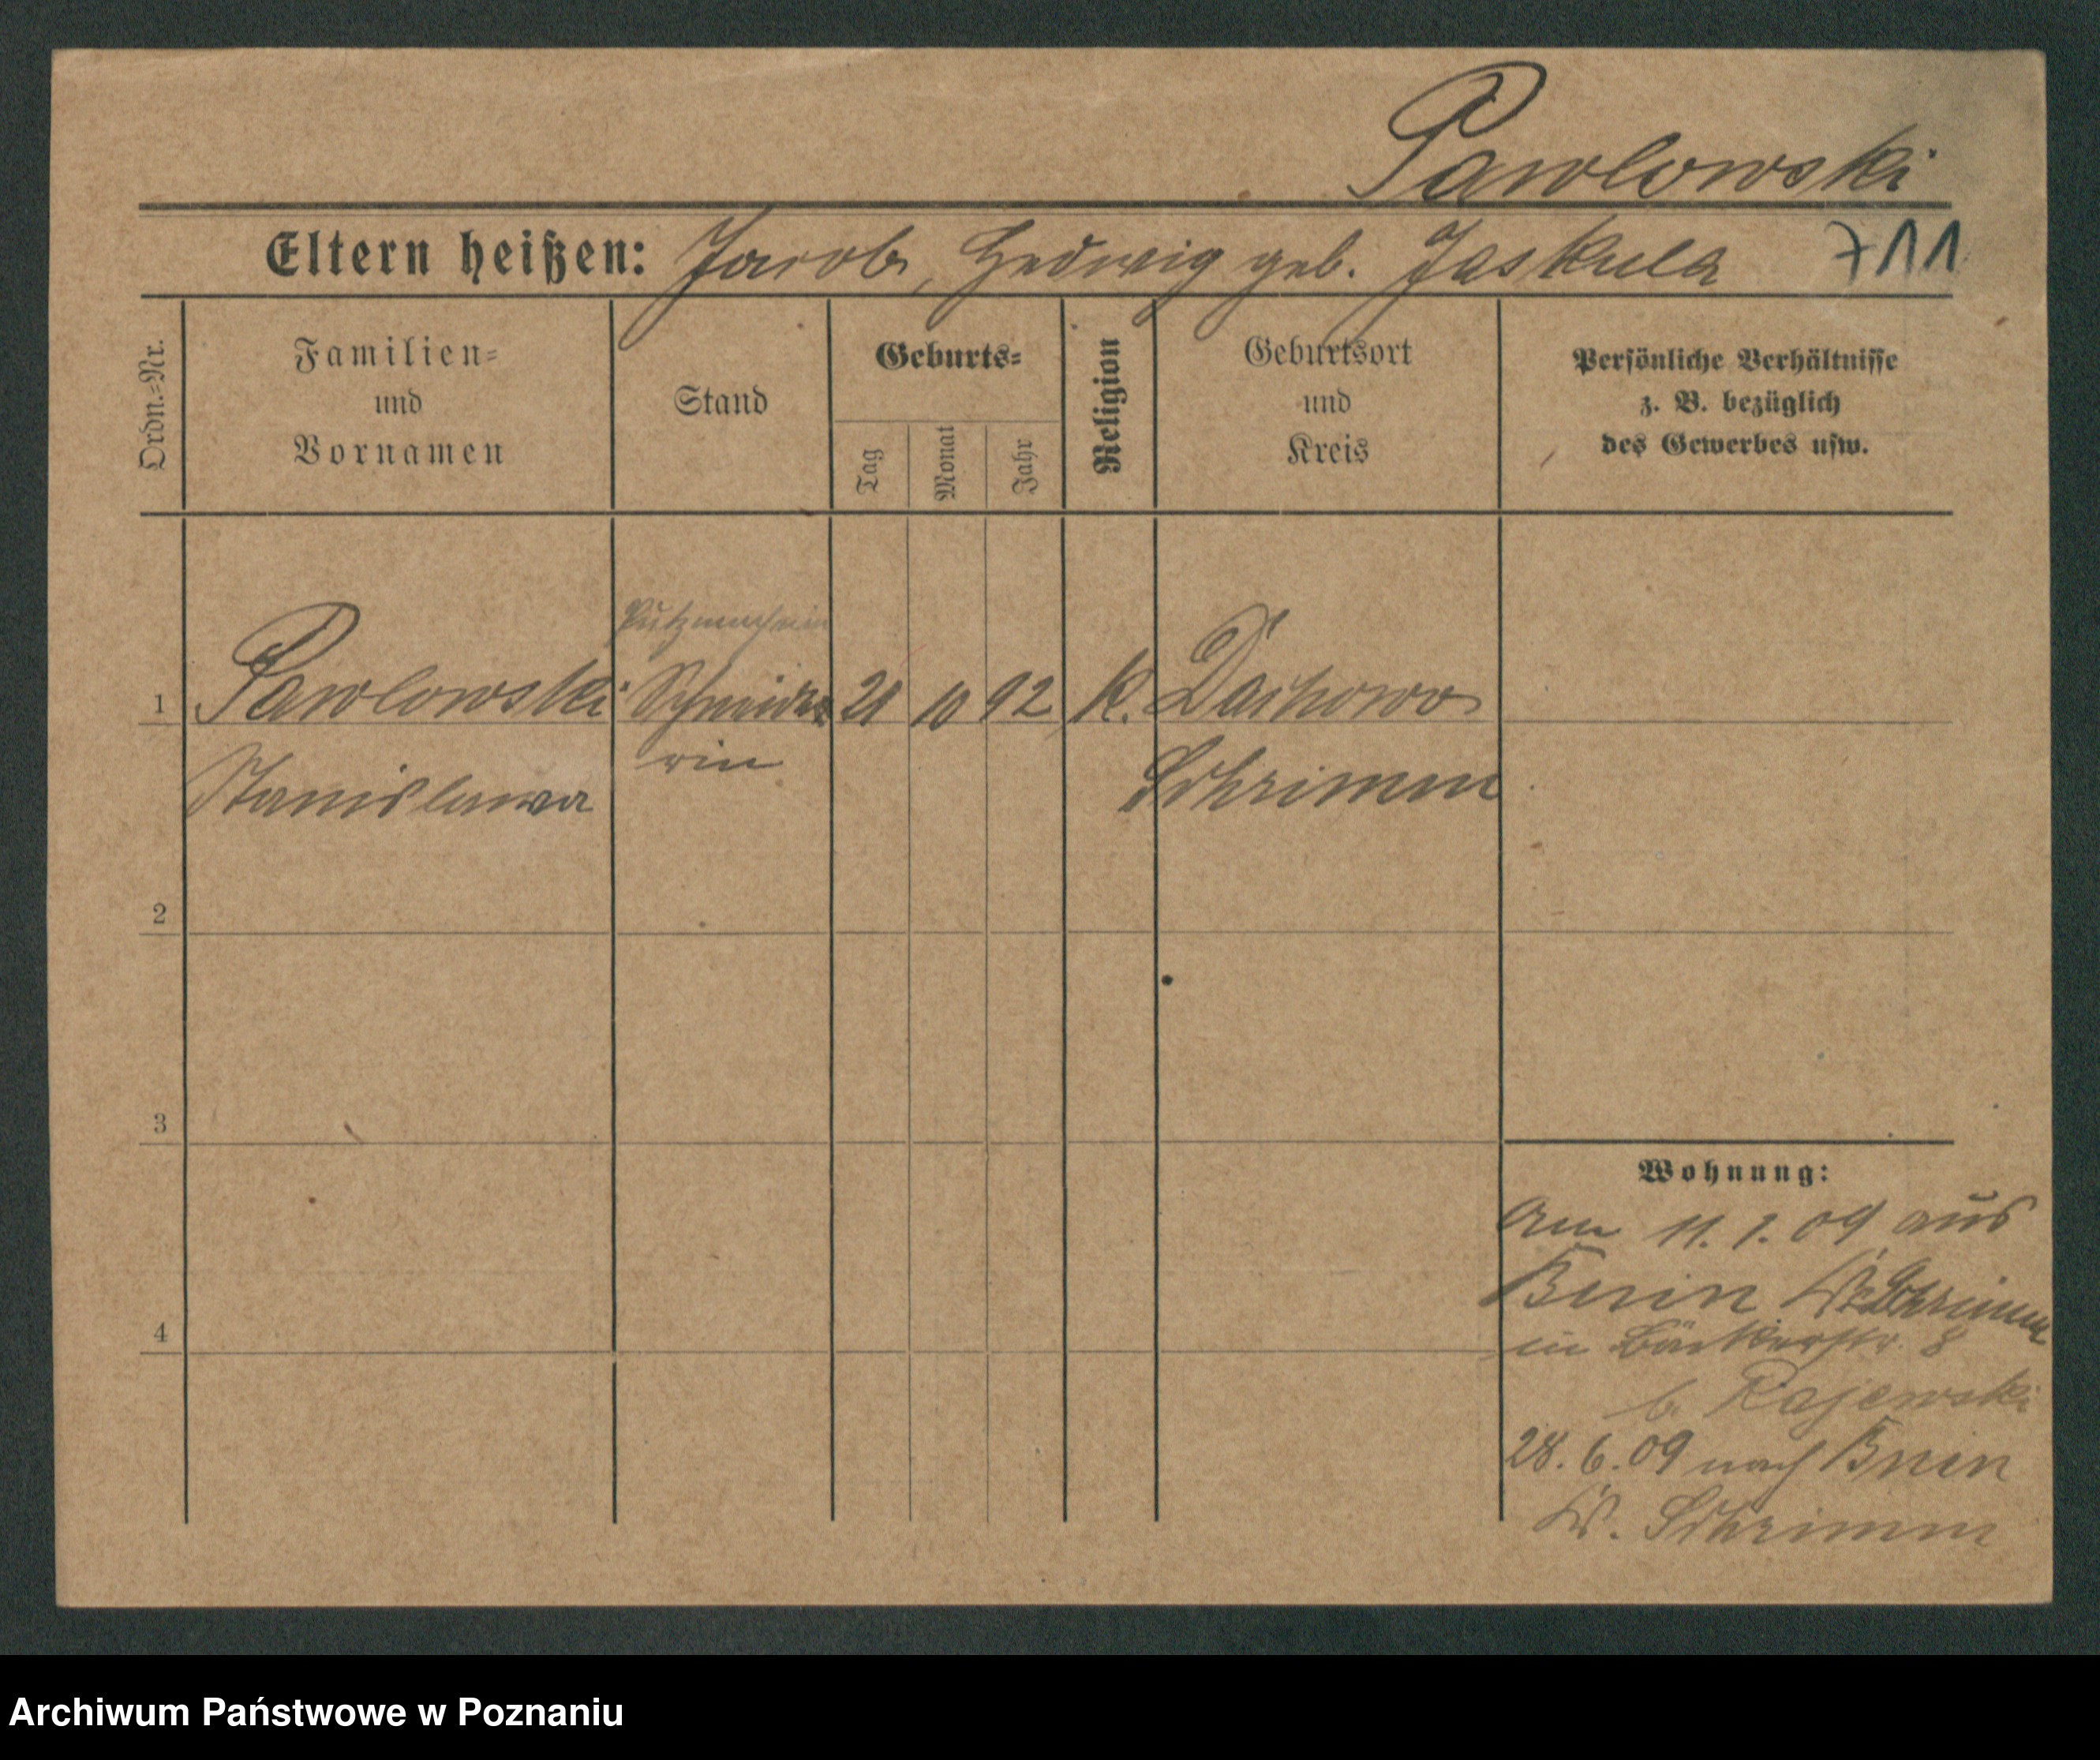 Pawlowski
Eltern heißen: Jacob, Hedwig geb. Jaskula 711
Ordn.=Nr.
Familien=
und
Vornamen
Stand
Geburts=
Tag
Monat
Jahr
Religion
Geburtsort
und
Kreis
Persönliche Verhältnisse
z. B. bezüglich
des Gewerbes usw.
Putzmacherin
1 Pawlowski Schneide 21 10 92 K. Dachowo
rin
Stanislawa Schrimm
2
3
4
Wohnung:
Am 11. 1. 09 aus
Bnin Kr. Schrimm
in Bäckerstr. 8
b. Rajewski
28. 6. 09 nach Bnin
Kr. Schrimm
Archiwum Państwowe w Poznaniu